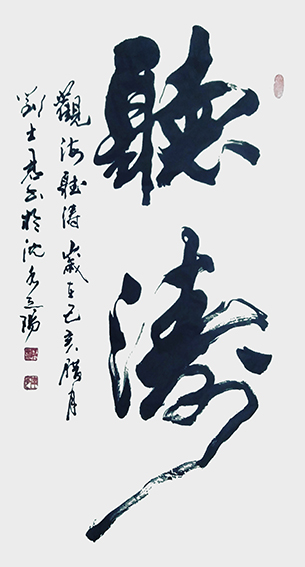 聽濤
觀海聽濤 歲在己亥臘月
劉士忍書於沈水之陽